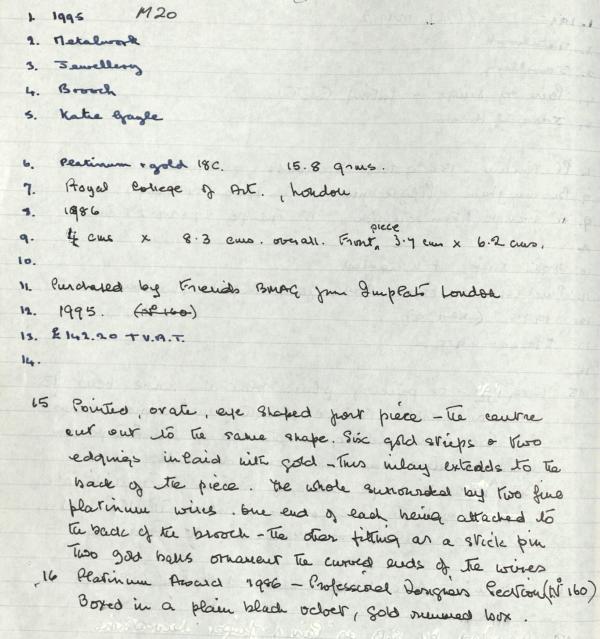 M20
1. 1995
2. Metalwork
3. Jewellery
4. Brooch
5. Katie Gayle
6. Platinum + gold 18C. 15.8 grms.
7. Royal College of Art., London
8. 1986
9. 4 cms x 8.3 cms. overall. Front piece 3.7 cms x 6.2 cms.
10.
11. Purchased by Friends BMAG from Implats London
12. 1995. (Nº 160)
13. £142.20 + V.A.T.
14.
15 Pointed, ovate, eye shaped front piece - the centre
cut out to the same shape. Six gold strips & two
edgings inlaid with gold - this inlay extends to the
back of the piece. The whole surrounded by two fine
platinum wires. One end of each being attached to
the back of the brooch - the other fitting as a stick pin
Two gold balls ornament the curved ends of the wires
16 Platinum Award 1986 - Professional Designers Section (Nº 160)
Boxed in a plain black velvet, gold rimmed box.